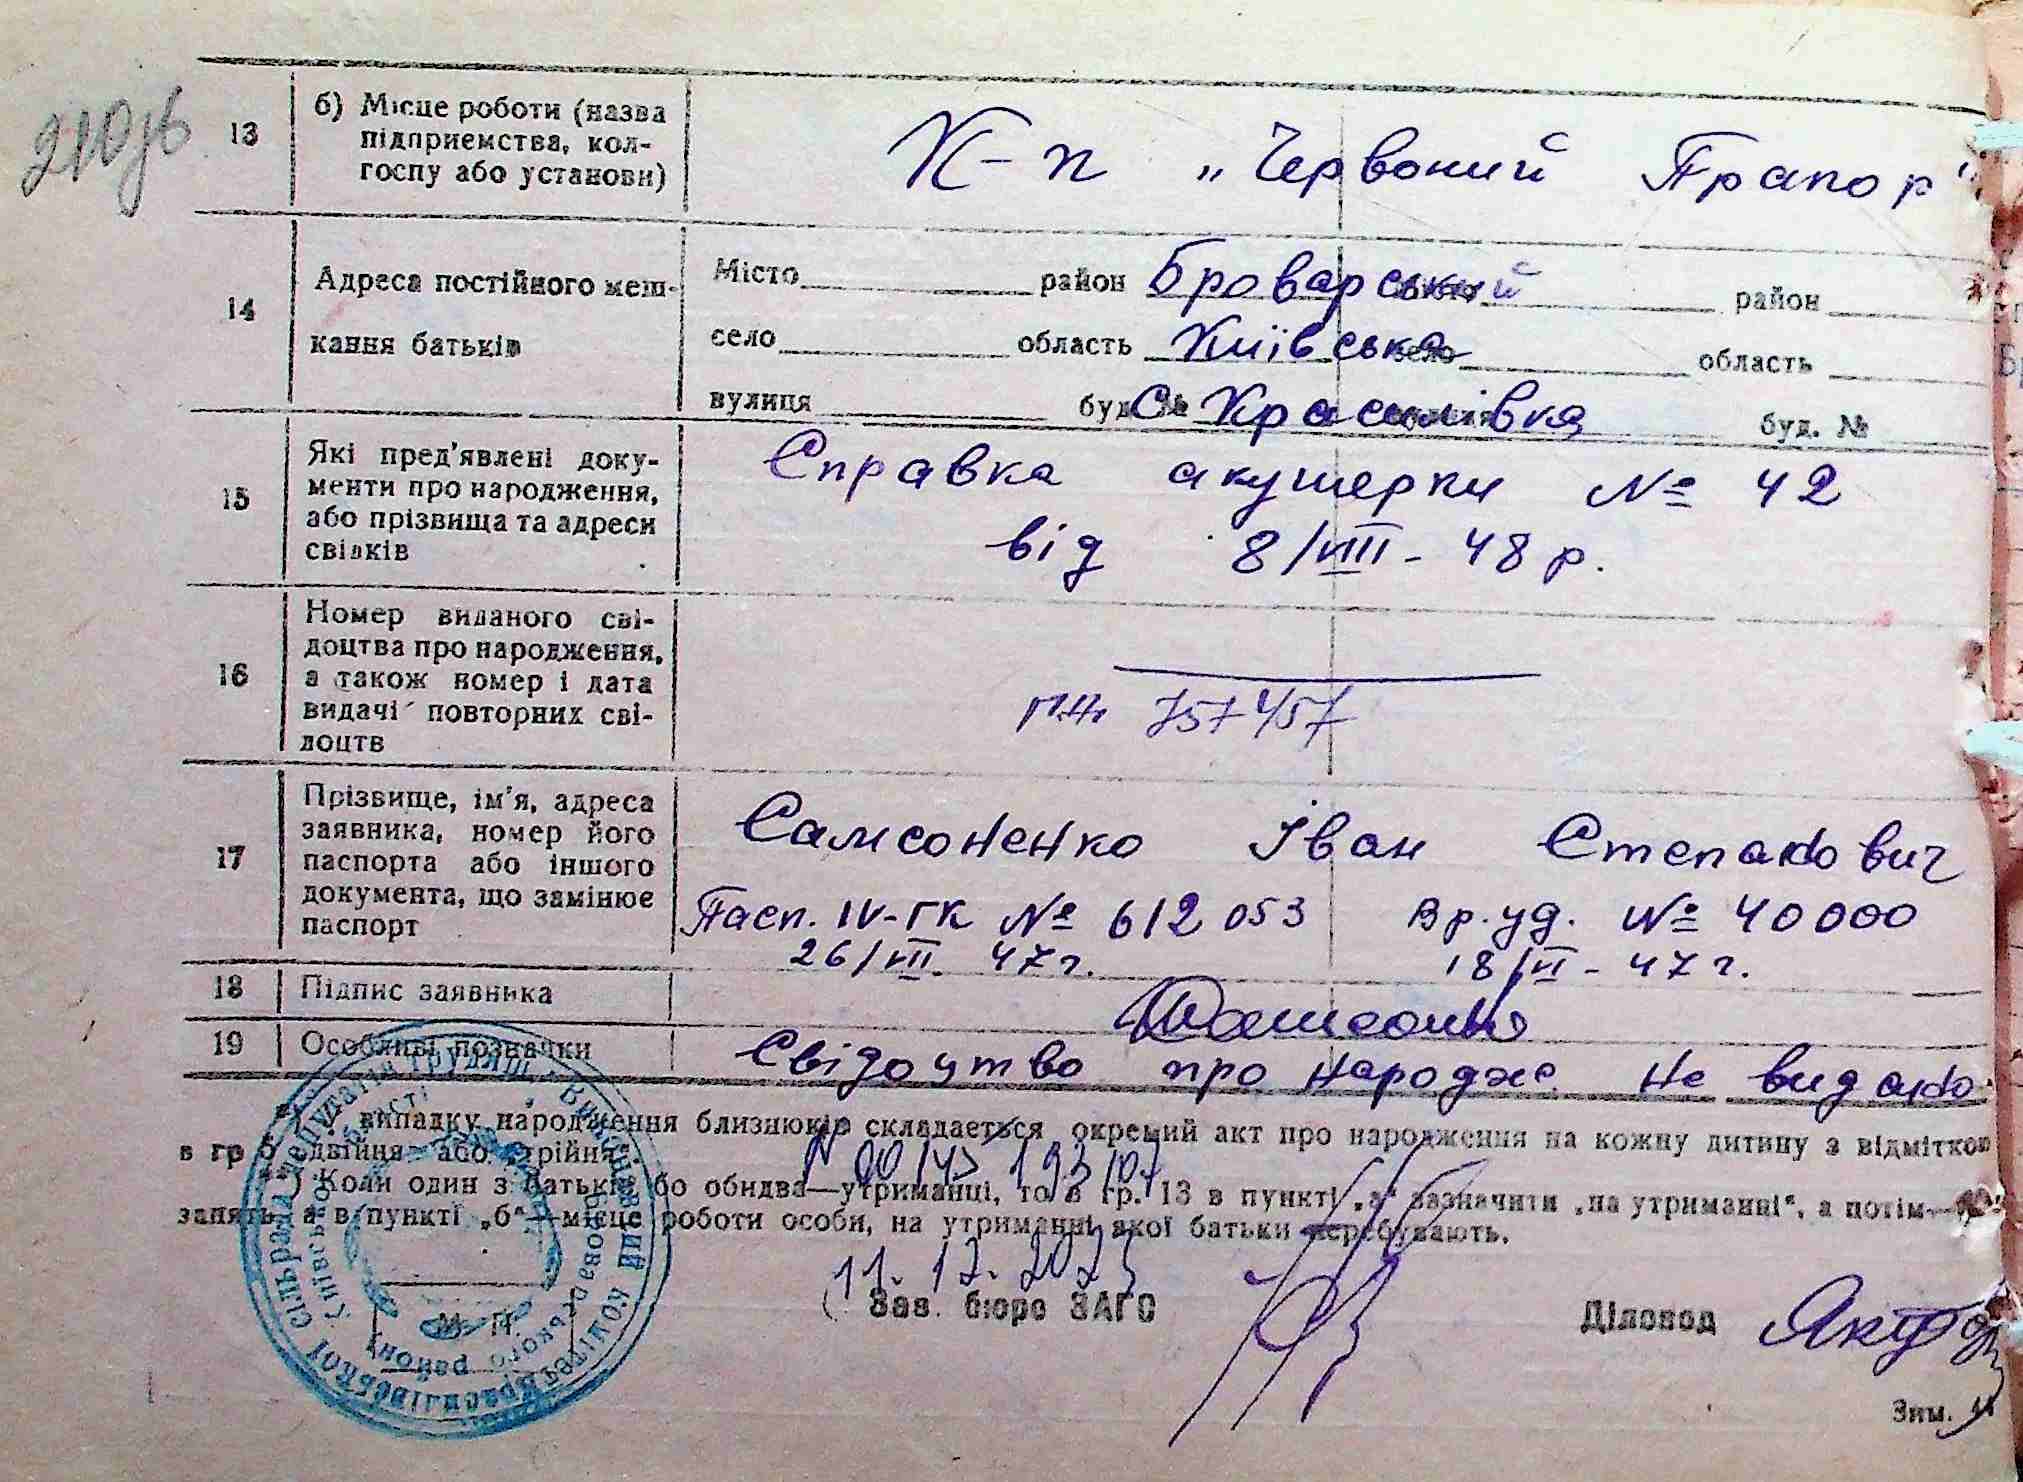 13
б) Місце роботи (назва
підприемства, кол-
госпу або установи)
К-п „Червоний Прапор"
14
Адреса постійного меш-
кання батьків
Місто район Броварський місто район
село область Київська село область
вулиця буд. № с. Красилівка буд. №
15
Які пред'явлені доку-
менти про народження,
або прізвища та адреси
свідків
Справка акушерки № 42
від 8/VIII-48 р.
16
Номер виданого сві-
доцтва про народження,
а також номер і дата
видачі повторних сві-
доцтв
757457
17
Прізвище, ім'я, адреса
заявника, номер його
паспорта або іншого
документа, що замінює
паспорт
Самсоненко Іван Степанович
Пасп. IV-ГК № 612053 Вр. уд. № 40000
26/VII. 47 г. 18/VI-47 г.
18 Підпис заявника
19 Особливі позначки
Свідоцтво про народж. не видано.
*) У випадку народження близнюків складається окремий акт про народження на кожну дитину з відміткою
в гр 5 „двійня" або „трійня".
**) Коли один з батьків або обидва—утриманці, то в гр. 13 в пункті „а" зазначити „на утриманні", а потім—
занять, а в пункті „б"—місце роботи особи, на утриманні якої батьки перебувають.
Зав. бюро ЗАГС
Діловод
М. П.
Зам.